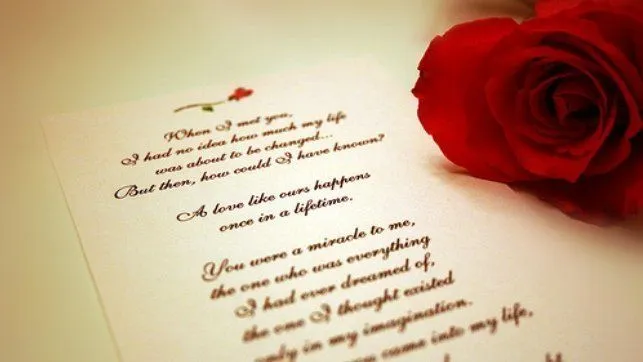 When I met you,
I had no idea how much my life
was about to be changed...
But then, how could I have known?
A love like ours happens
once in a lifetime.
You were a miracle to me,
the one who was everything
I had ever dreamed of,
the one I thought existed
only in my imagination.
you came into my life,